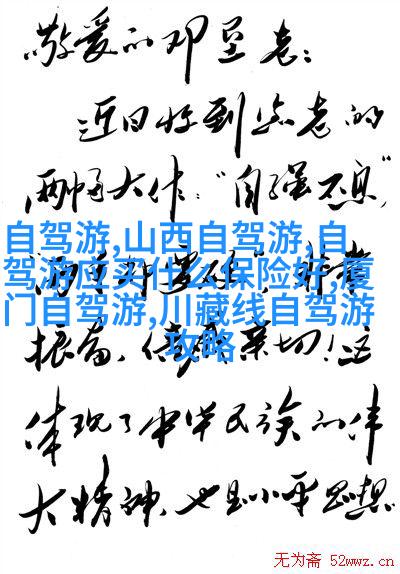 敬爱的邓垦老：
近日收到您老的
两幅大作：“自强不息”
自驾游,山西自驾游,自
驾游应买什么保险好,厦
门自驾游,川藏线自驾游
攻略
振奋、倍感亲切！这
体现了中华民族的伟
大精神，也是小平思想
无为斋 52wwz.cn